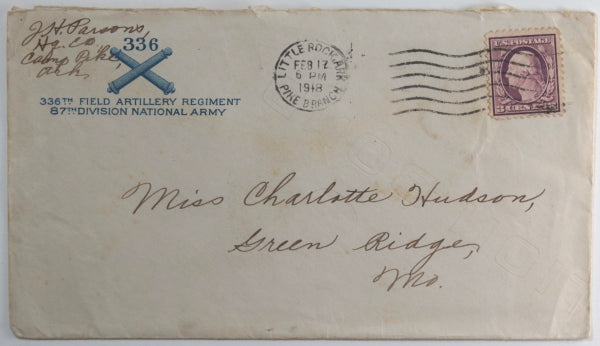 J. H. Parsons,
Hq. Co.
Camp Pike
Ark.
336
336TH FIELD ARTILLERY REGIMENT
87TH DIVISION NATIONAL ARMY
LITTLE ROCK, ARK.
FEB 17
6 PM
1918
PIKE BRANCH
U.S. POSTAGE
CENTS
Miss Charlotte Hudson,
Green Ridge,
Mo.